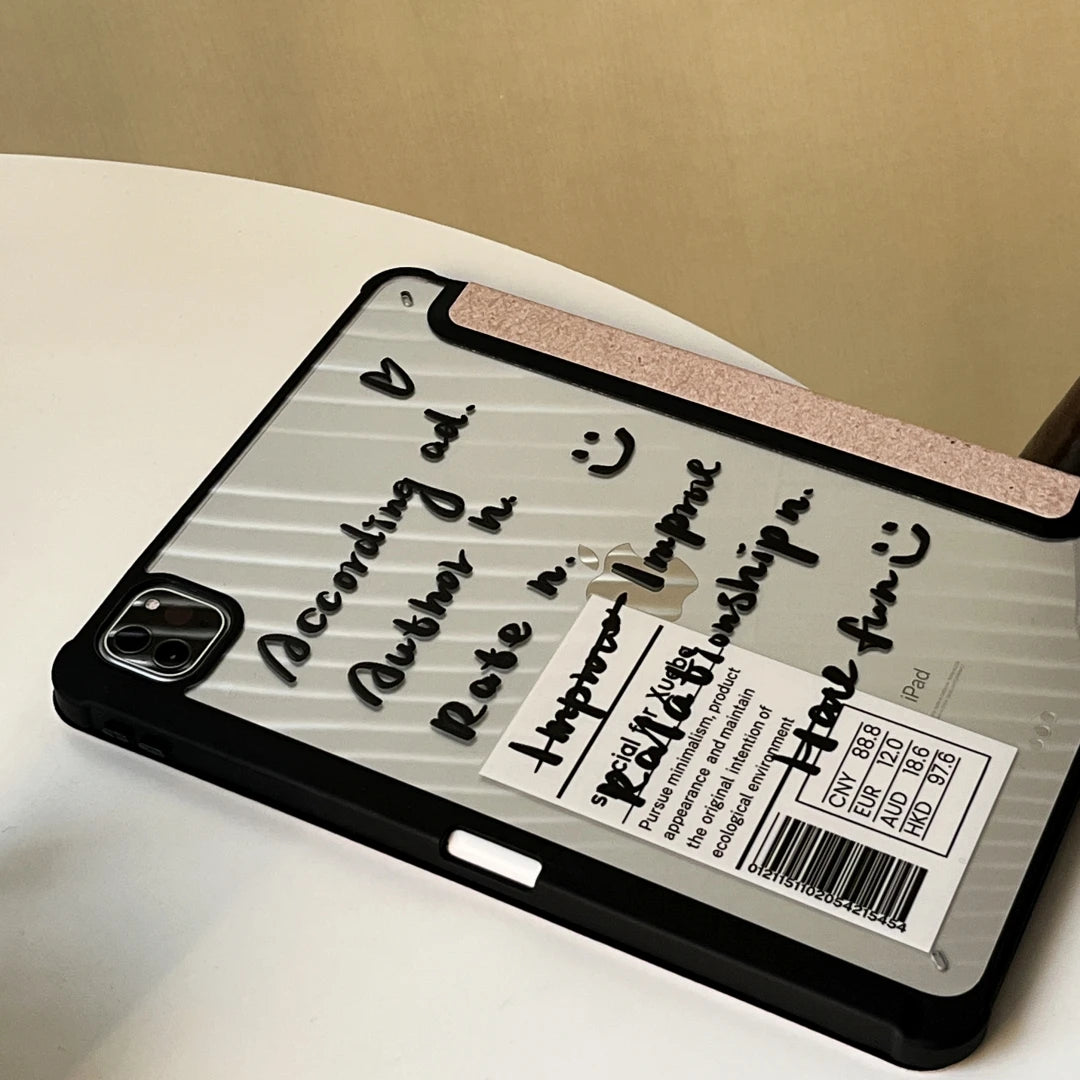 According ad.
Author n.
Rate n.
Improve Improve
Relationship n.
Have fun
special for Xugba
Pursue minimalism, product
appearance and maintain
the original intention of
ecological environment
CNY 88.8
EUR 12.0
AUD 18.6
HKD 97.6
iPad